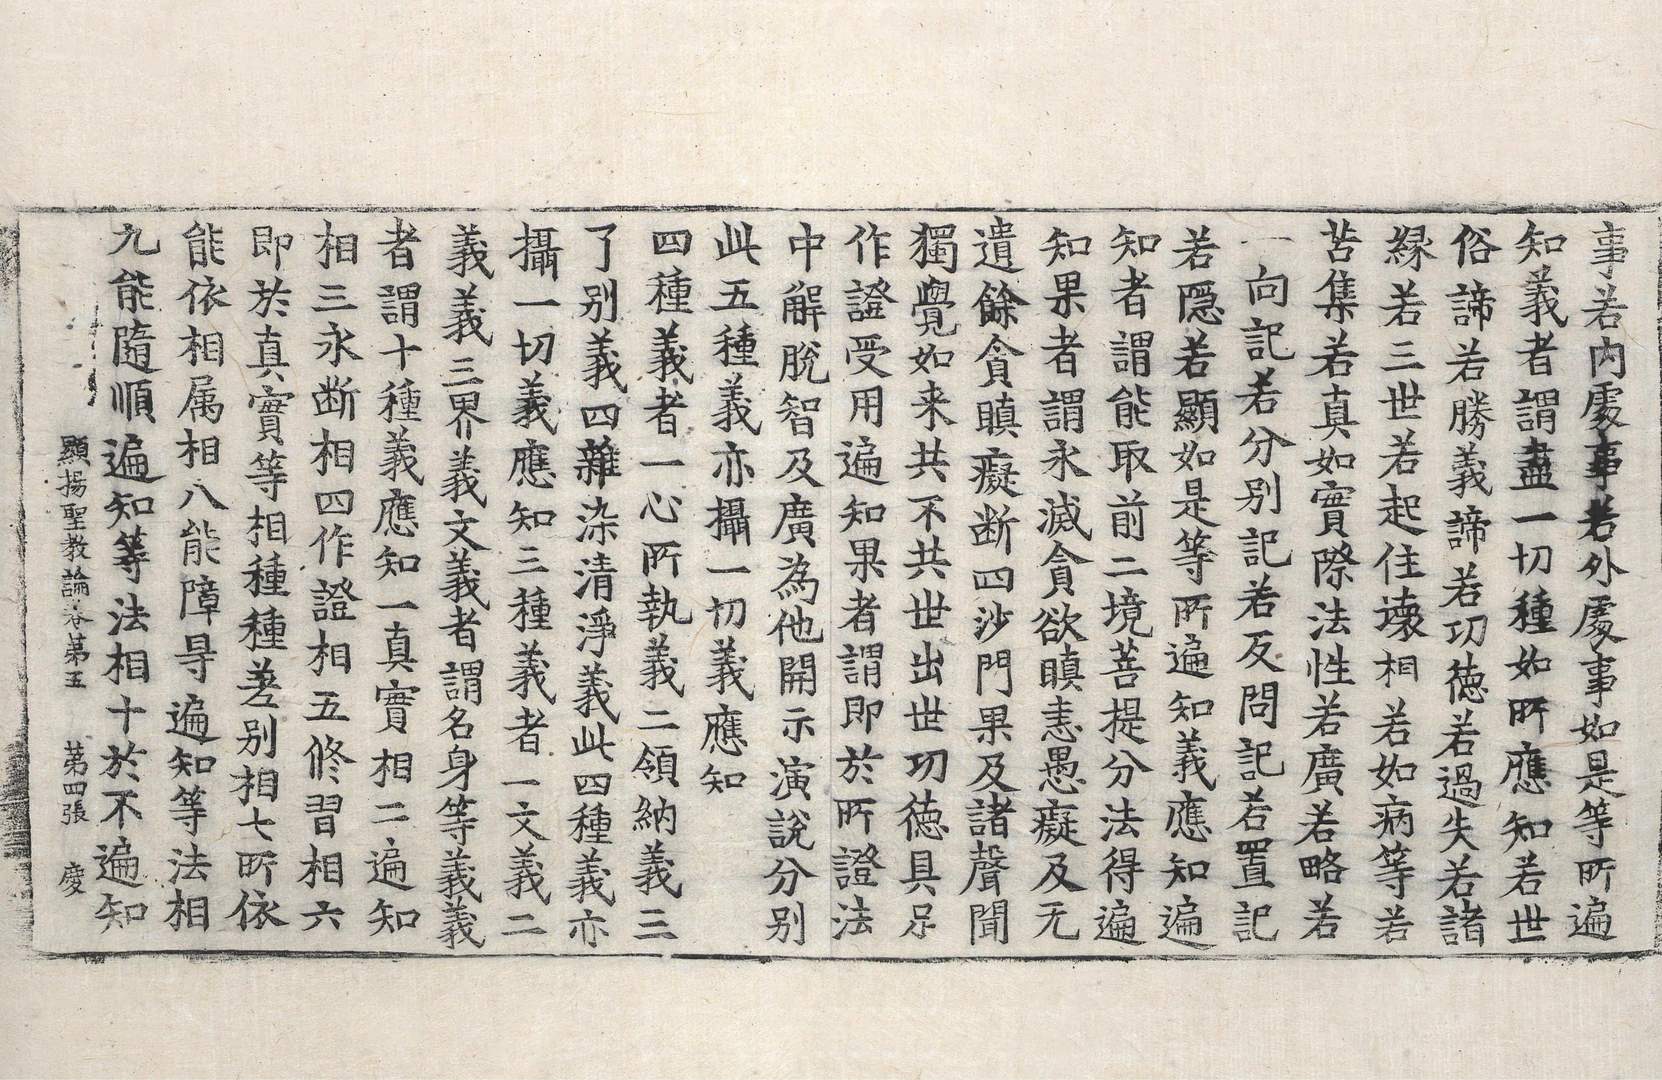 事若內處事若外處事如是等所遍
知義者謂盡一切種如所應知若世
俗諦若勝義諦若功德若過失若諸
緣若三世若起住壞相若如病等若
苦集若真如實際法性若廣若略若
一向記若分別記若反問記若置記
若隱若顯如是等所遍知義應知遍
知者謂能取前二境菩提分法得遍
知果者謂永滅貪欲瞋恚愚癡及无
遺餘貪瞋癡斷四沙門果及諸聲聞
獨覺如来共不共世出世功德具足
作證受用遍知果者謂即於所證法
中解脫智及廣為他開示演說分別
此五種義亦攝一切義應知
四種義者一心所執義二領納義三
了別義四雜染清淨義此四種義亦
攝一切義應知三種義者一文義二
義義三界義文義者謂名身等義義
者謂十種義應知一真實相二遍知
相三永断相四作證相五修習相六
即於真實等相種種差別相七所依
能依相属相八能障㝵遍知等法相
九能隨順遍知等法相十於不遍知
顯揚聖教論卷第五 第四張 慶